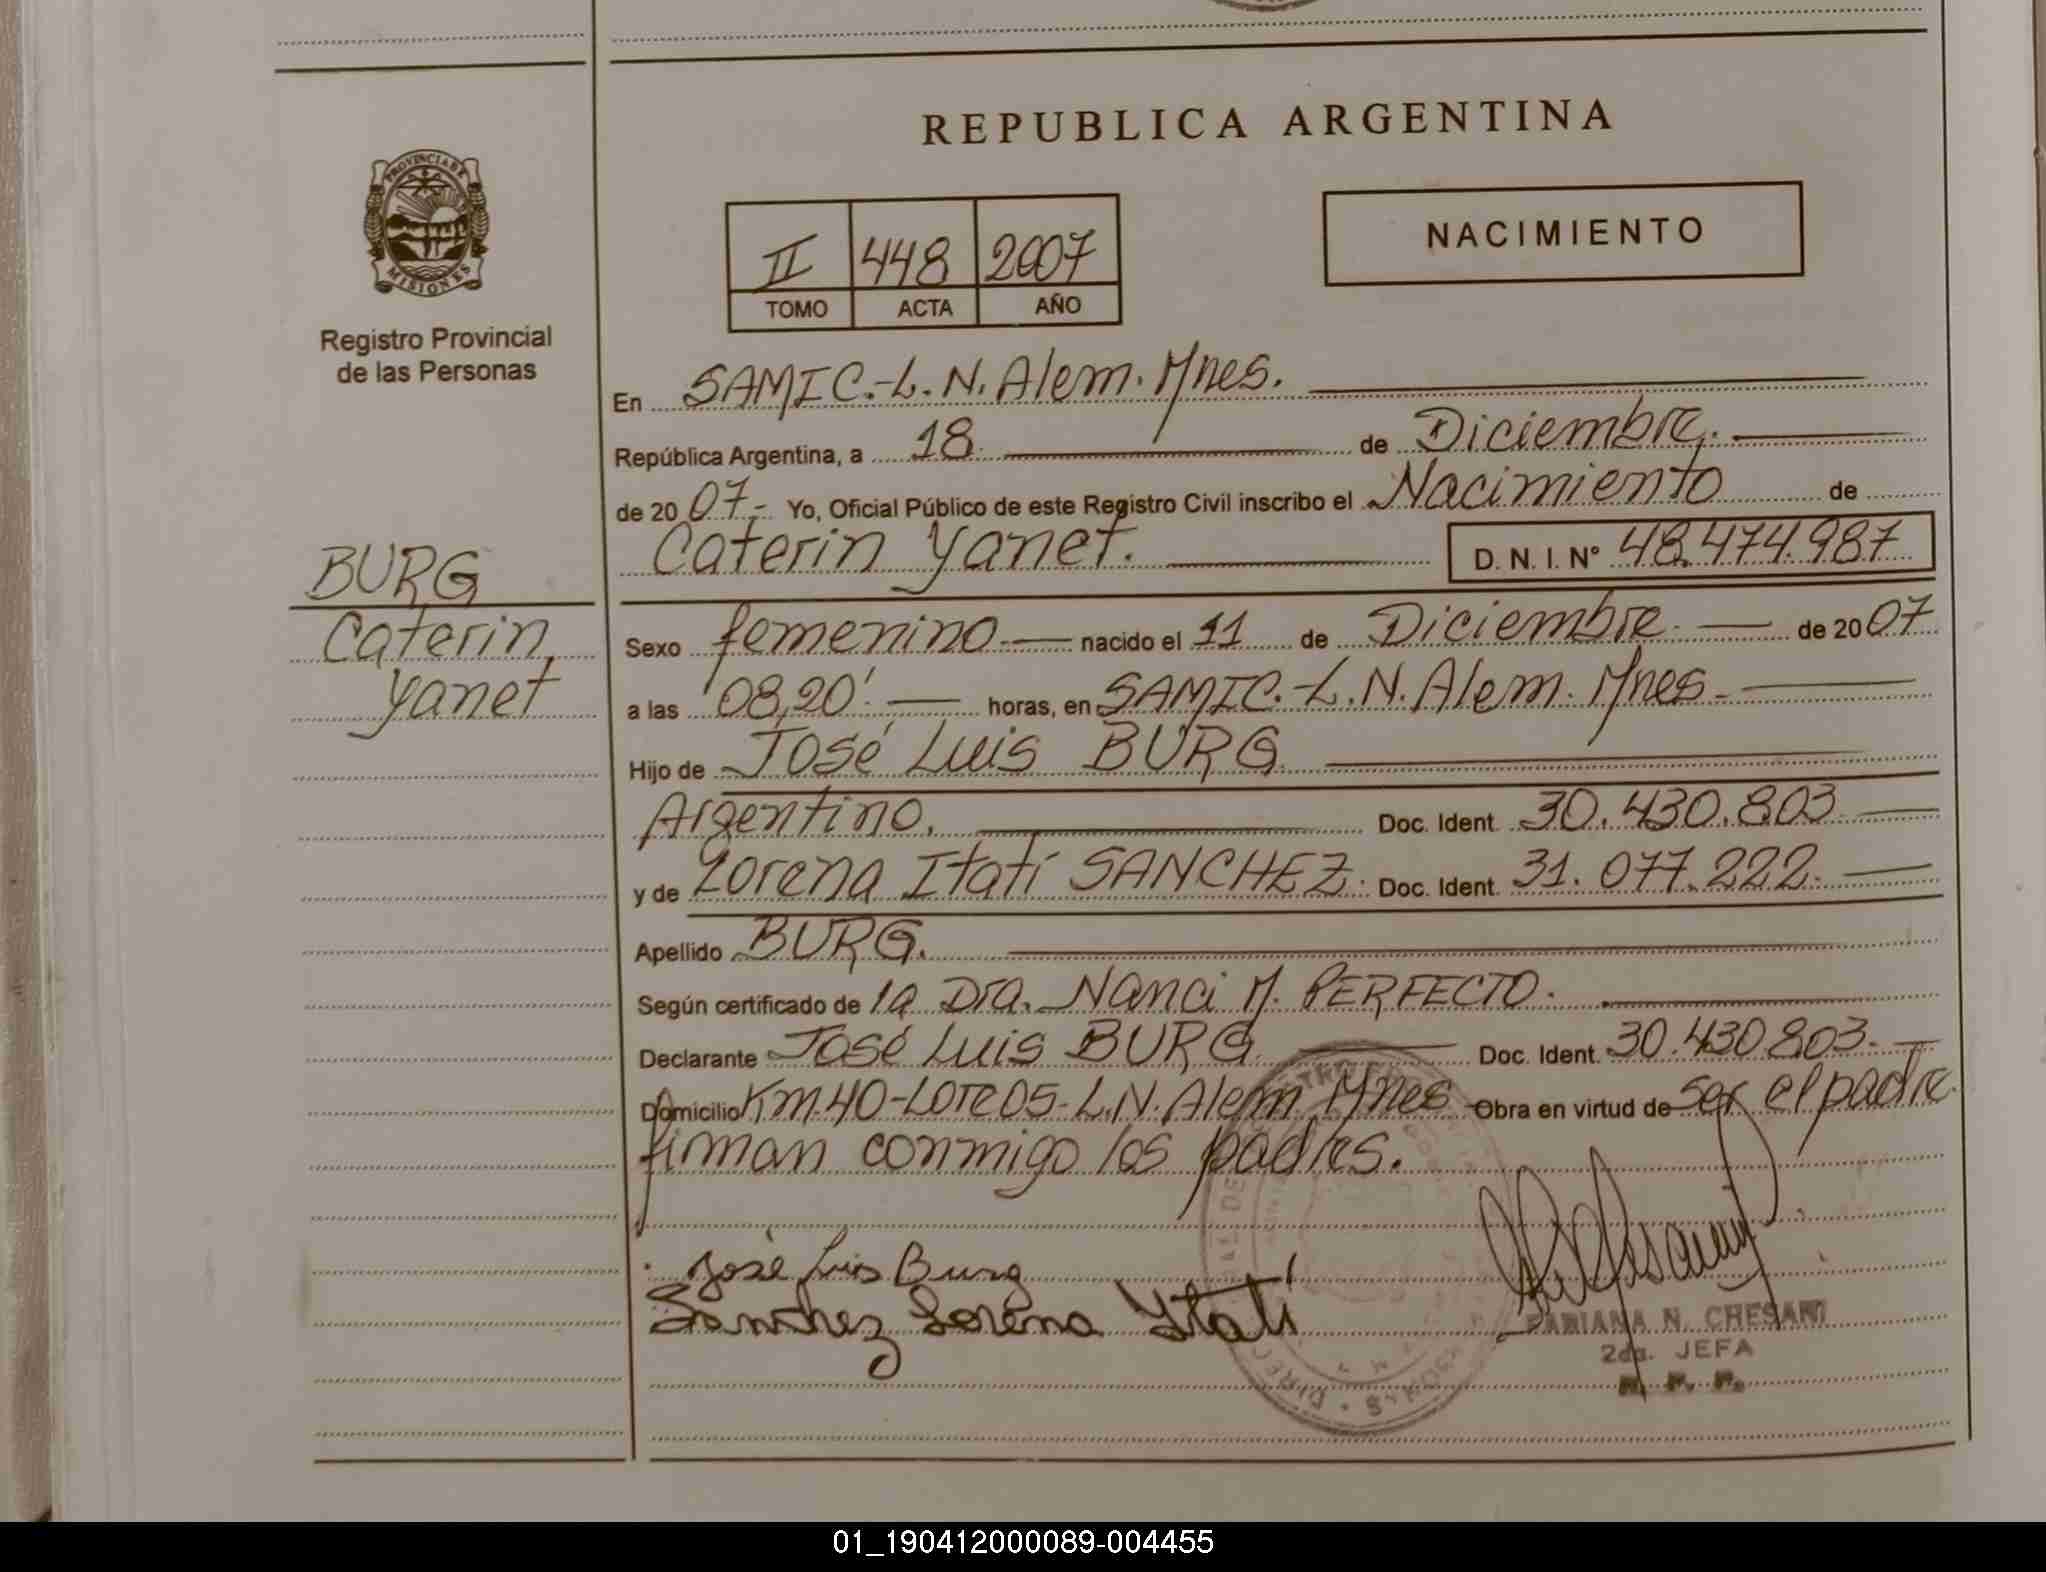 REPUBLICA ARGENTINA
PROVINCIA DE
MISIONES
Registro Provincial
de las Personas
II 448 2007
TOMO ACTA AÑO
NACIMIENTO
En SAMIC.-L.N.Alem. Mnes.
República Argentina, a 18 de Diciembre.
de 2007.- Yo, Oficial Público de este Registro Civil inscribo el Nacimiento de
Caterin Yanet. D. N. I. Nº 48.474.987
BURG
Caterin
Yanet
Sexo femenino nacido el 11 de Diciembre de 2007
a las 08,20' horas, en SAMIC.-L.N.Alem. Mnes.
Hijo de José Luis BURG
Argentino. Doc. Ident. 30.430.803
y de Lorena Itatí SANCHEZ. Doc. Ident. 31.077.222.
Apellido BURG.
Según certificado de la Dra. Nanci M. PERFECTO.
Declarante José Luis BURG Doc. Ident. 30.430.803.
Domicilio Km.40-Lote 05-L.N.Alem Mnes Obra en virtud de ser el padre
firman conmigo los padres.
José Luis Burg
Sánchez Lorena Ytatí
FABIANA N. CHESANI
2da. JEFA
R. P. P.
01_190412000089-004455